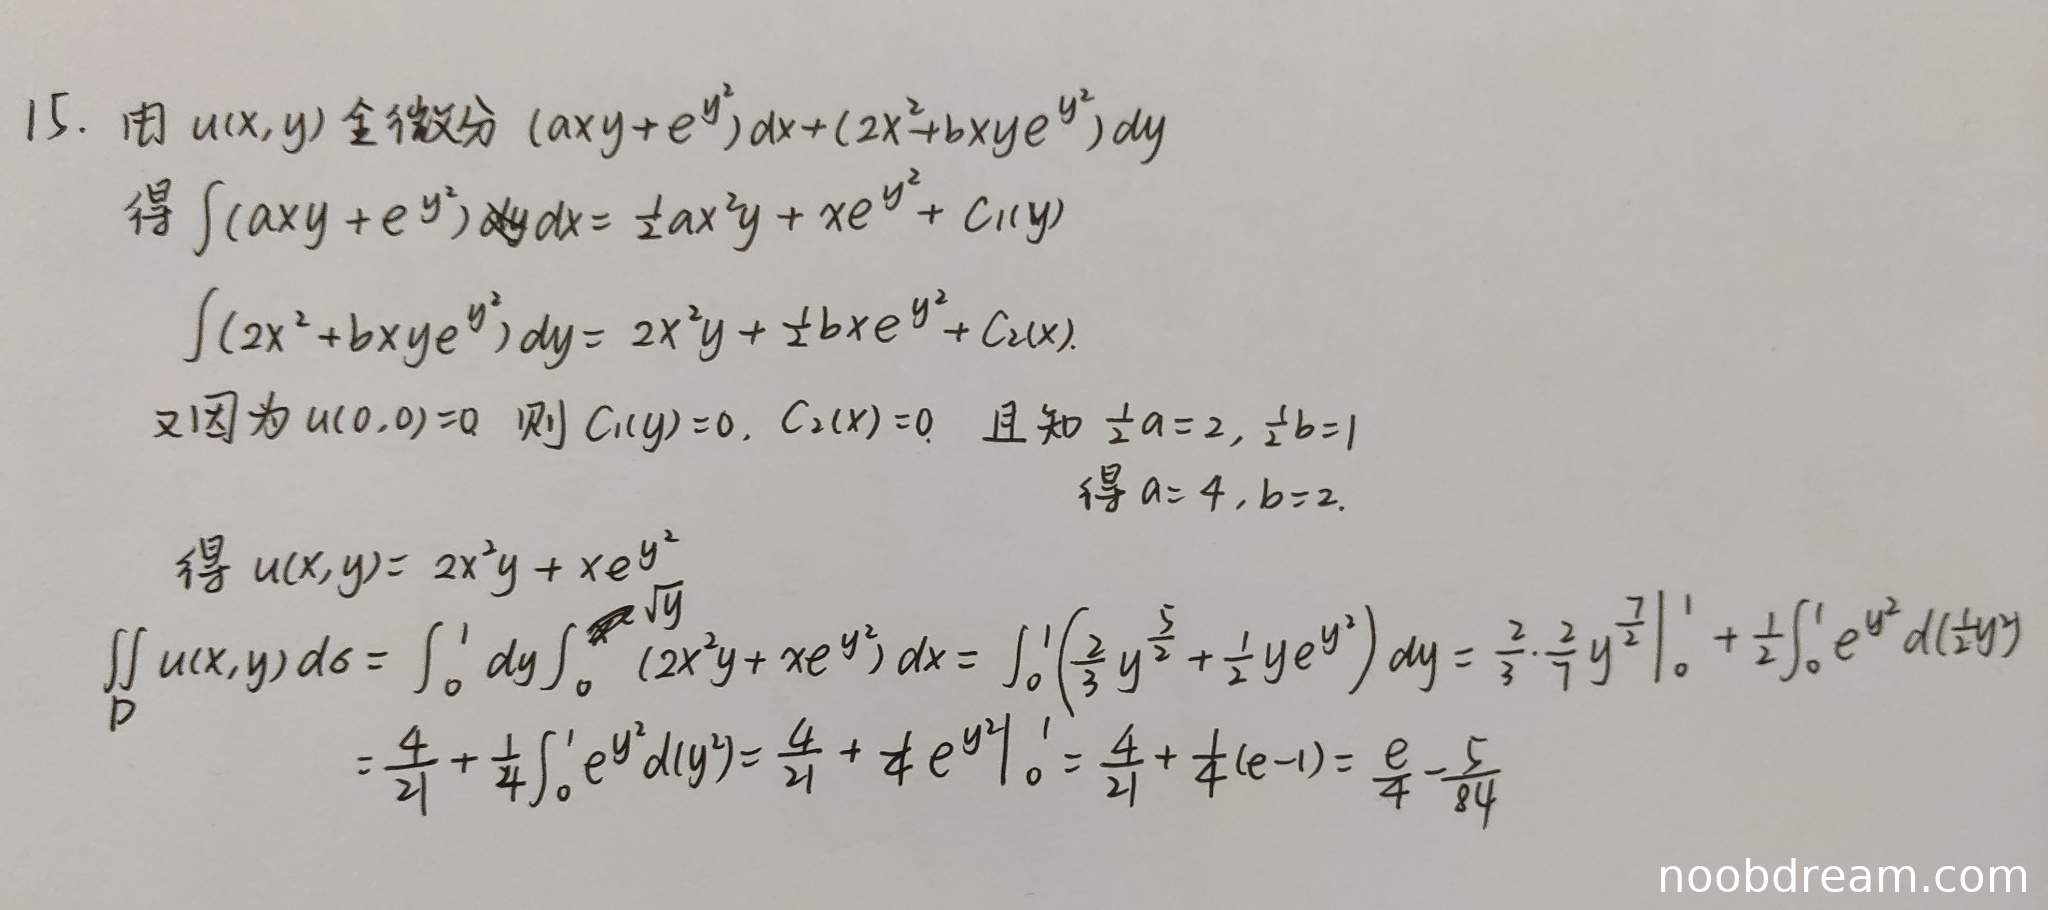 15. 由 u(x,y) 全微分 (axy+e^{y^2})dx+(2x^2+bxye^{y^2})dy
得 ∫(axy+e^{y^2})dx = 1/2 ax^2y + xe^{y^2} + C_1(y)
∫(2x^2+bxye^{y^2})dy = 2x^2y + 1/2 bxe^{y^2} + C_2(x).
又因为 u(0,0)=0. 则 C_1(y)=0, C_2(x)=0. 且知 1/2 a=2, 1/2 b=1
得 a=4, b=2.
得 u(x,y)= 2x^2y + xe^{y^2}
∬_D u(x,y)dσ = ∫_0^1 dy ∫_0^{√y} (2x^2y+xe^{y^2})dx = ∫_0^1 (2/3 y^{5/2} + 1/2 ye^{y^2}) dy = 2/3·2/7 y^{7/2}|_0^1 + 1/2 ∫_0^1 e^{y^2} d(1/2 y^2)
= 4/21 + 1/4 ∫_0^1 e^{y^2} d(y^2) = 4/21 + 1/4 e^{y^2}|_0^1 = 4/21 + 1/4 (e-1) = e/4 - 5/84
noobdream.com